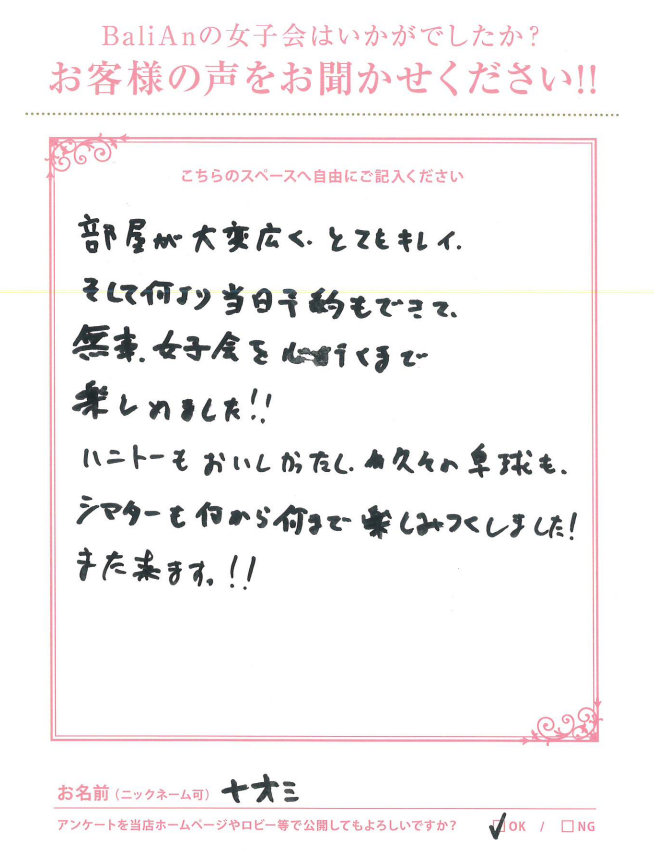 BaliAnの女子会はいかがでしたか?
お客様の声をお聞かせください!!
こちらのスペースへ自由にご記入ください
部屋が大変広く、とてもキレイ、
そして何より当日予約もできて、
無事、女子会を心行くまで
楽しめました!!
ハニトーもおいしかったし、久々の卓球も、
シアターも何から何まで楽しみつくしました!
また来ます。!!
お名前(ニックネーム可) ナオミ
アンケートを当店ホームページやロビー等で公開してもよろしいですか? ☑OK / □NG